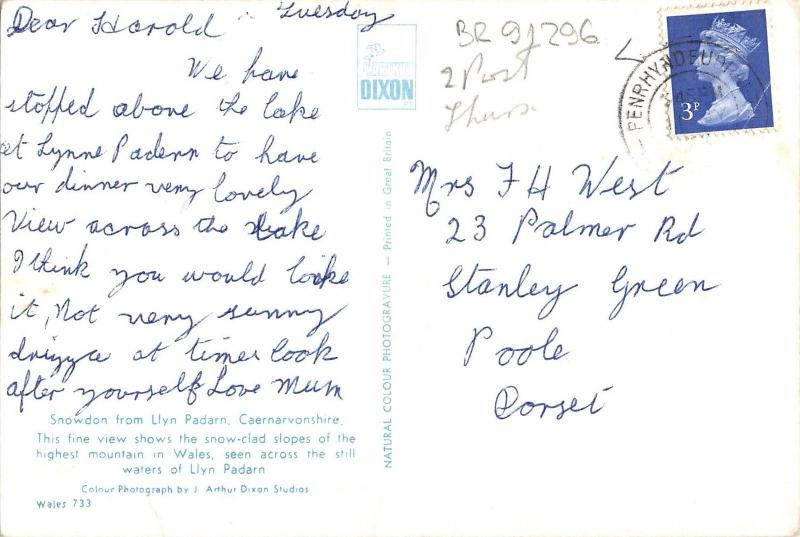 Dear Harold
Tuesday
We have
stopped above the lake
at Lynne Padern to have
our dinner very lovely
View across the lake
I think you would like
it, Not very sunny
drizzle at times look
after yourself Love Mum
Snowdon from Llyn Padarn, Caernarvonshire.
This fine view shows the snow-clad slopes of the
highest mountain in Wales, seen across the still
waters of Llyn Padarn
Colour Photograph by J Arthur Dixon Studios
Wales 733
DIXON
NATURAL COLOUR PHOTOGRAVURE — Printed in Great Britain
BR 91296
2 Post
Thurs
PENRHYNDEUD
3P
Mrs F H West
23 Palmer Rd
Stanley Green
Poole
Dorset